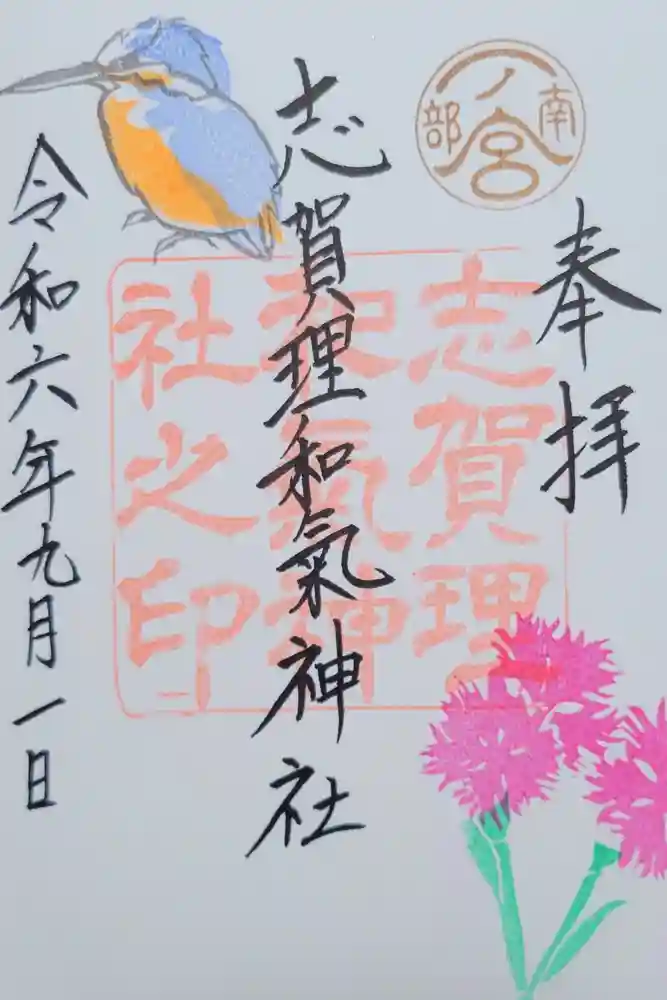 奉拝
南部一ノ宮
志賀理和氣神社
志賀理
和氣神
社之印
令和六年九月一日